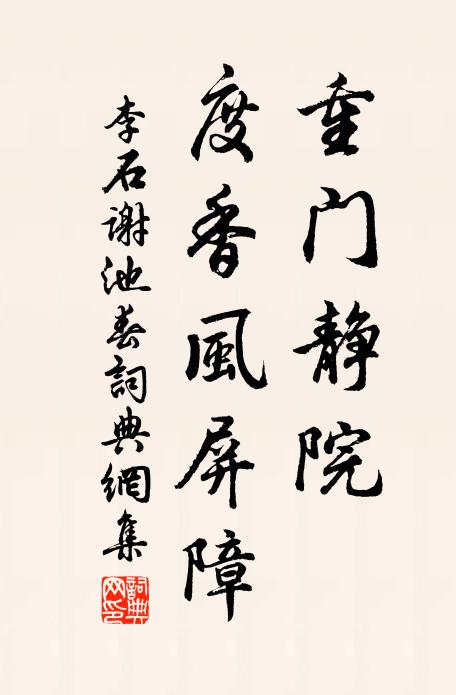 重门静院
度香風屏障
李石謝池春詞典網集
詞典网印